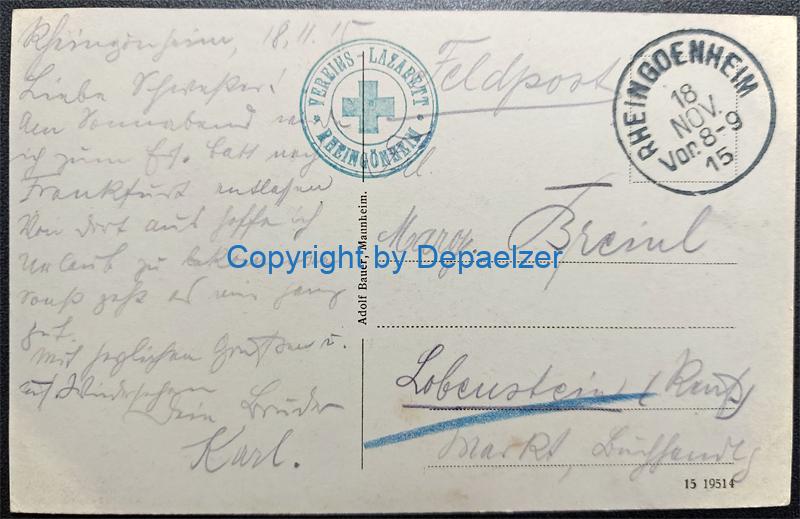 Rheingönheim, 18.11.15
Liebe Schwester!
Am Sonnabend werde
ich zum Ers. Batt nach
Frankfurt entlassen
Von dort aus hoffe ich
Urlaub zu
sonst geht es mir ganz
gut.
Mit herzlichen Grüßen u.
auf Wiedersehen
Dein Bruder
Karl.
VEREINS-LAZARETT
RHEINGÖNHEIM
Feldpost
RHEINGOENHEIM
18
NOV.
Vor. 8-9
15
Marg. Breinl
Lobenstein (Reuß)
Markt, Buchhandlg
Adolf Bauer, Mannheim.
15 19514
Copyright by Depaelzer